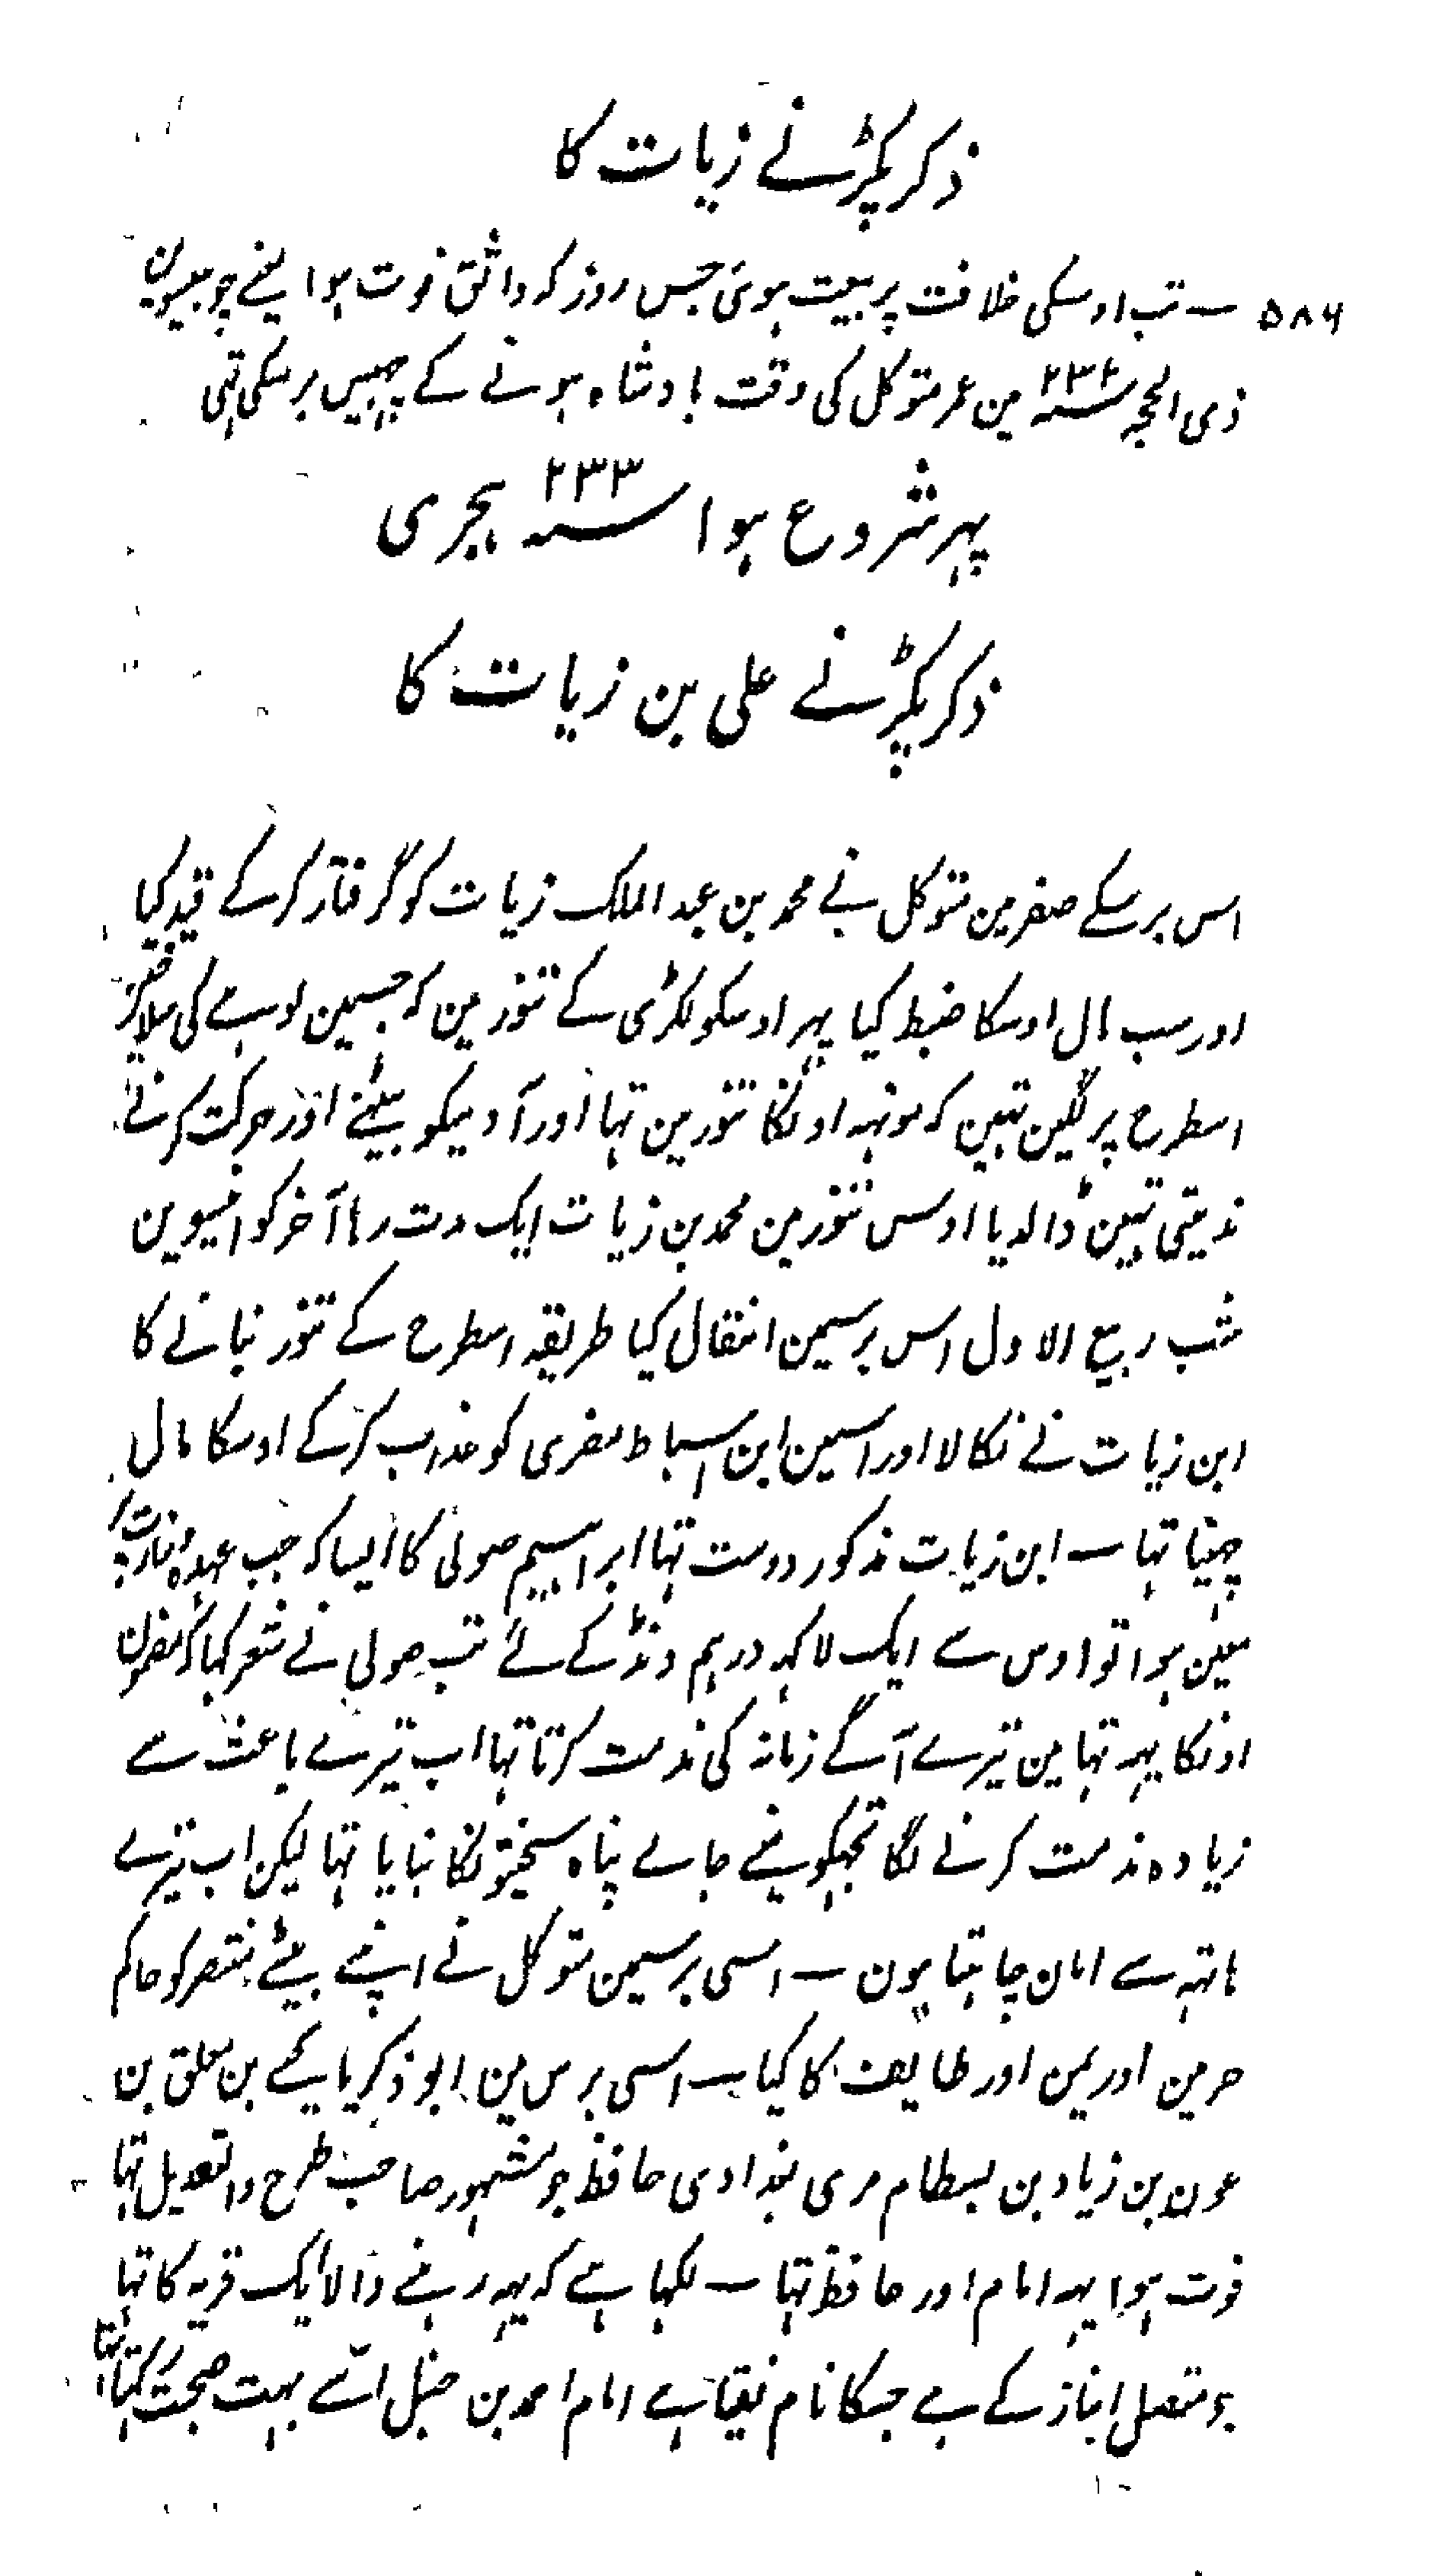 ذکر پکڑنے زیات کا
۵۸۶ ـــ تب اوسکی خلافت پر بیعت ہوئی جس روز کہ واثق فوت ہوا یعنے چوبیسوین
ذی الحجہ سنہ ۲۳۲ مین عمر متوکل کی وقت بادشاہ ہونے کے چہبیس برسکی تہی
پہر شروع ہوا سنہ ۲۳۳ ہجری
ذکر پکڑنے علی بن زیات کا
اس برسکے صفر مین متوکل نے محمد بن عبد الملک زیات کو گرفتار کرکے قید کیا
اور سب مال اوسکا ضبط کیا پہر اوسکو لکڑی کے تنور مین کہ جسمین لوہے کی سلاخین
اسطرح پر لگین تہین کہ مونہہ اونکا تنور مین تہا اور آدمیکو بیٹہنے اور حرکت کرنے
ندیتی تہین ڈالدیا اوس تنور مین محمد بن زیات ایک مدت رہا آخر کو انیسوین
شب ربیع الاول اس برسمین انتقال کیا طریقہ اسطرح کے تنور بنانے کا
ابن زیات نے نکالا اور اسمین ابن اسباط مصری کو عذاب کرکے اوسکا مال
چہینا تہا ـــ ابن زیات مذکور دوست تہا ابراہیم صولی کا ایسا کہ جب عہدہ وزارت پر
معین ہوا تو اوس سے ایک لاکہہ درہم ڈنڈ کے لئے تب صولی نے شعر کہا کہ مضمون
اونکا یہہ تہا مین تیرے آگے زمانہ کی مذمت کرتا تہا اب تیرے باعث سے
زیادہ مذمت کرنے لگا تجہکو مینے جاے پناہ سختیونکا بنایا تہا لیکن اب تیرے
ہاتہہ سے امان چاہتا ہون ـــ اسی برسمین متوکل نے اپنے بیٹے منتصر کو حاکم
حرمین اور یمن اور طایف کا کیا ـــ اسی برس مین ابو ذکریا یحے بن معلق بن
عون بن زیاد بن بسطام مری بغدادی حافظ جو مشہور صاحب طرح والتعدیل تہا
فوت ہوا یہہ امام اور حافظ تہا ـــ لکہا ہے کہ یہہ رہنے والا ایک قریہ کا تہا
جو متصل انبار کے ہے جسکا نام نقیا ہے امام احمد بن حنبل اسے بہت صحبت رکہتا تہا